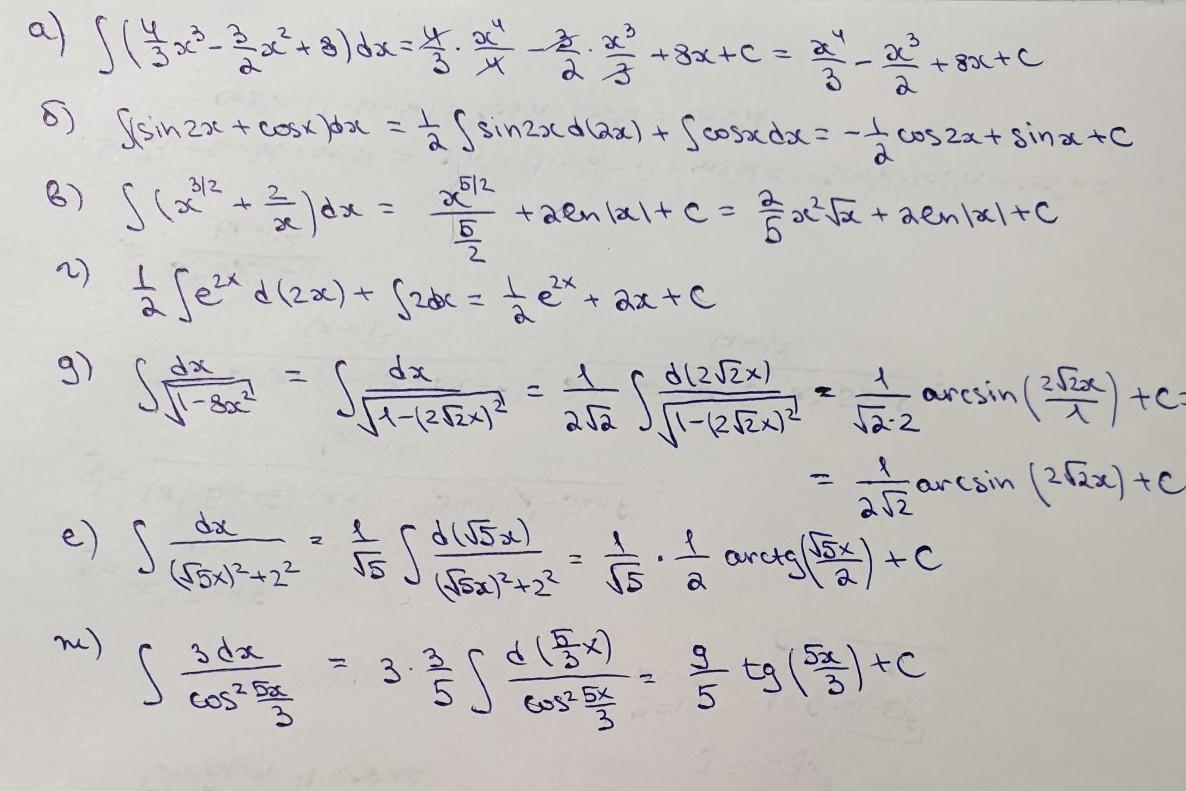 а) ∫(4/3 x³ - 3/2 x² + 8)dx = 4/3 · x⁴/4 - 3/2 · x³/3 + 8x + C = x⁴/3 - x³/2 + 8x + C
б) ∫(sin2x + cosx)dx = 1/2 ∫sin2x d(2x) + ∫cosxdx = -1/2 cos2x + sinx + C
в) ∫(x^(3/2) + 2/x)dx = x^(5/2)/(5/2) + 2ln|x| + C = 2/5 x²√x + 2ln|x| + C
г) 1/2 ∫e^(2x) d(2x) + ∫2dx = 1/2 e^(2x) + 2x + C
д) ∫dx/√(1-8x²) = ∫dx/√(1-(2√2x)²) = 1/(2√2) ∫d(2√2x)/√(1-(2√2x)²) = 1/(√2·2) arcsin(2√2x/1) + C =
= 1/(2√2) arcsin(2√2x) + C
е) ∫dx/((√5x)²+2²) = 1/√5 ∫d(√5x)/((√5x)²+2²) = 1/√5 · 1/2 arctg(√5x/2) + C
ж) ∫3dx/(cos² 5x/3) = 3 · 3/5 ∫d(5/3 x)/(cos² 5x/3) = 9/5 tg(5x/3) + C